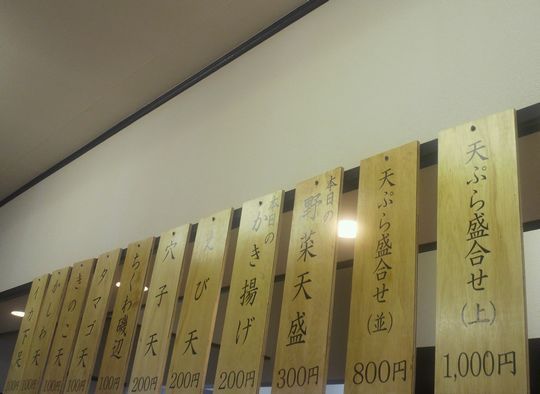 天ぷら盛合せ(上)
1,000円
天ぷら盛合せ(並)
800円
本日の
野菜天盛
300円
本日の
かき揚げ
200円
えび天
200円
穴子天
200円
ちくわ磯辺
100円
タマゴ天
100円
きのこ天
100円
かしわ天
100円
イカ下足
100円